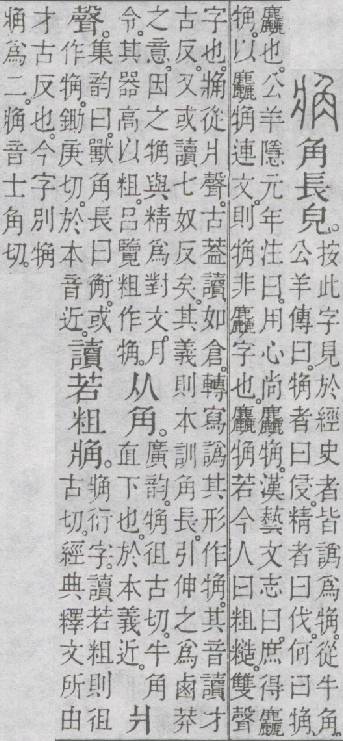 𧣈角長皃。按此字見於經史者皆譌爲觕。從牛角。
公羊傳曰。觕者曰侵。精者曰伐。何曰觕。
麤也。公羊隱元年注曰。用心尚麤觕。漢藝文志曰。庶得麤
觕。以麤觕連文。則觕非麤字也。麤觕若今人曰粗糙。雙聲
字也。𧣈從爿聲。古葢讀如倉。轉寫譌其形作觕。其音讀才
古反。又或讀七奴反矣。其義則本訓角長。引伸之爲鹵莽
之意。因之觕與精爲對文。月
令其器高以粗。呂覽粗作觕。
从角。廣韵。觕徂古切。牛角
直下也。於本義近。
爿
聲。集韵曰。獸角長曰衡。或
作觕。鋤庚切。於本音近。
讀若粗𧣈。𧣈衍字。讀若粗則徂
古切。經典釋文所由
才古反也。今字別觕
𧣈爲二。𧣈音士角切。